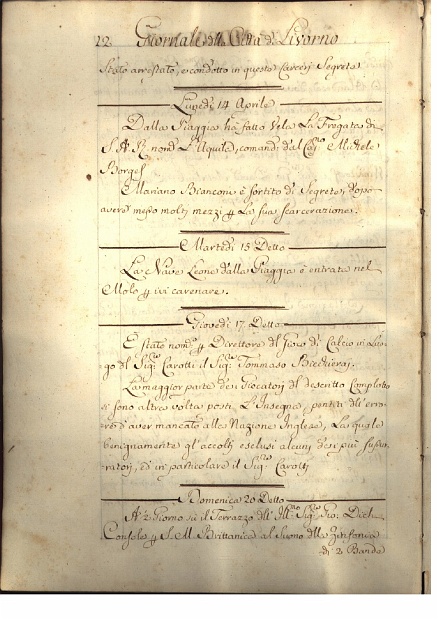 12. Giornale dlla Città di Livorno
Stato arrestato, e condotto in queste Carceri Segrete
Lunedì 14 Aprile
Dalla Piaggia ha fatto Vela La Fregata di
S. A. R. nom.ª L'Aquila, comand: dal Cap.no Michele
Borgel
Mariano Bianconi è sortito di Segrete, dopo
avere messo molti mezzi p La sua scarcerazione.
Martedì 15 Detto
La Nave Leone dalla Piaggia è entrata nel
Molo p ivi carenare.
Giovedì 17. Detto
È stato nom.º p Direttore dl Gioco di Calcio in Luo-
go dl Sig.re Carotti il Sig.re Tommaso
La maggior parte dei Giocatori dl descritto Complotto
si sono altra volta posti L'Insegna, pentiti dll'erro-
re d'aver mancato alla Nazione Inglese, La quale
benignamente gl'accolti esclusi alcuni de i più
ratori, ed in particolare il Sig.re Carotti
Domenica 20 Detto
A' 2 Giorno sù il Terrazzo dll' Ill.mo Sig.re Gio: Dick
Console p S. M. Brittanica al Suono dlla Zinfonia
di 2 Bande